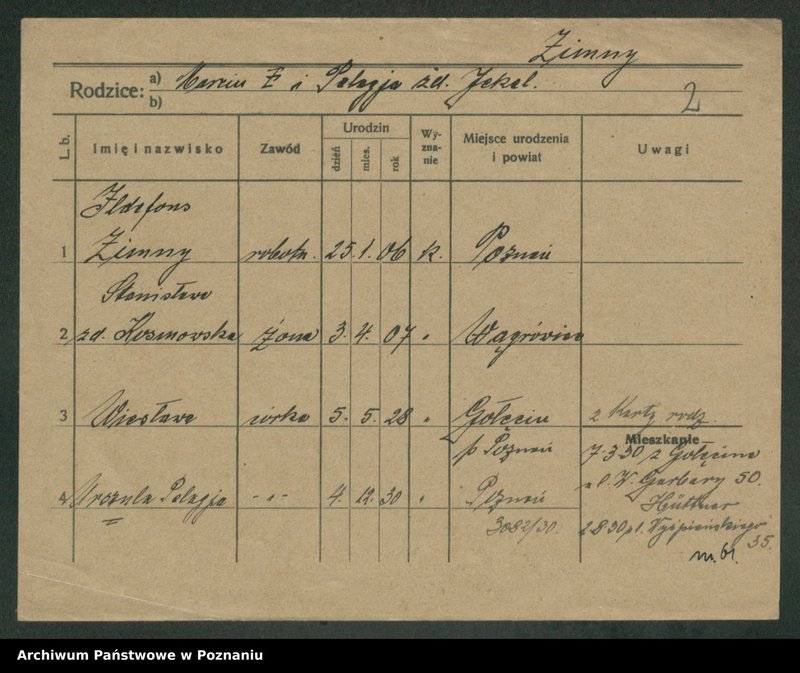 Zimny
Rodzice: a) Marcin i Pelagja zd. Jekel.
b)
2
L. b. Imię i nazwisko Zawód Urodzin dzień mies. rok Wyznanie Miejsce urodzenia i powiat Uwagi
Ildefons
1 Zimny robotn. 25. 1. 06 k. Poznań
Stanisława
2 zd. Kosmowska żona 3. 4. 07 " Wągrówiec
3 Wiesława córka 5. 5. 28 " Gołęcin z Karty rodz.
p. Poznań
Mieszkanie
7.3.30 z Gołęcina
ul. W. Garbary 50.
4 Urszula Pelagja -"- 4. 12. 30 " Poznań
Hüttner
3082/30.
2 8 30 pl. Wyspiańskiego
35.
m. 61.
Archiwum Państwowe w Poznaniu